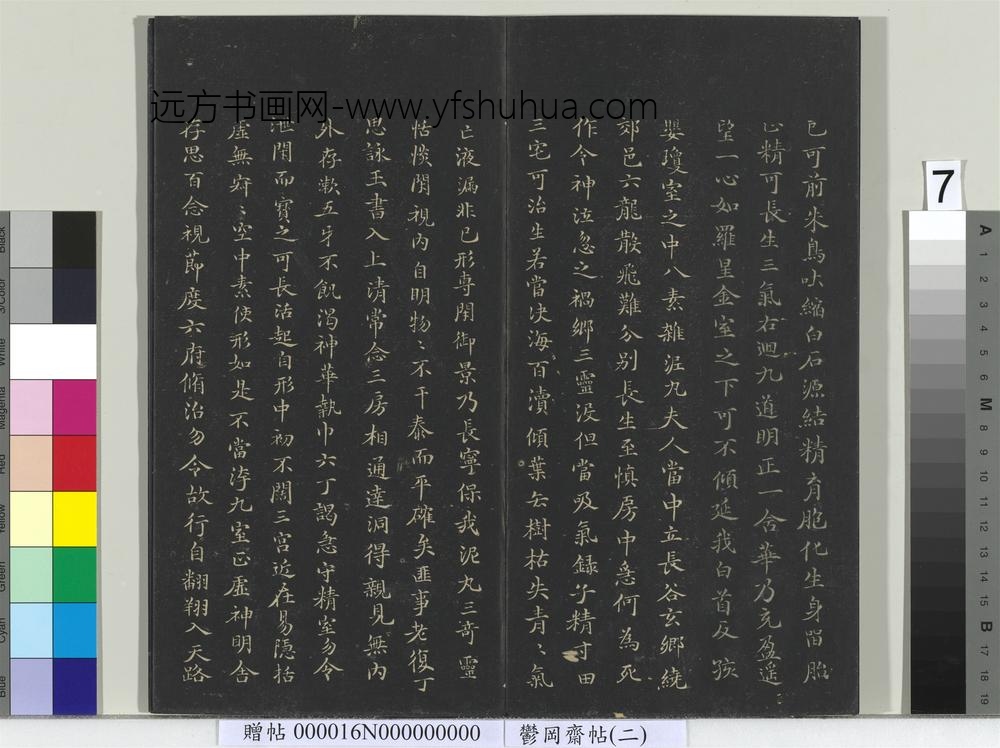 远方书画网-www.yfshuhua.com
已可前朱鳥吐縮白石源結精育胞化生身留胎
止精可長生三氣右迴九道明正一含華乃充盈遥
望一心如羅星金室之下可不傾延我白首反孩
嬰瓊室之中八素雜泥丸夫人當中立長谷玄鄉繞
郊邑六龍散飛難分别長生至慎房中急何為死
作令神泣忽之禍鄉三靈歿但當吸氣錄子精寸田
三宅可治生若當决海百瀆傾葉去樹枯失青〻氣
亡液漏非已形專閉御景乃長寧保我泥丸三奇靈
恬惔閉視內自明物〻不干泰而平確矣匪事老復丁
思詠玉書入上清常念三房相通達洞得親見無內
外存漱五牙不飢渴神華執巾六丁謁急守精室勿令
泄閉而寶之可長活起自形中初不闊三宮近在易隱括
虛無寂〻空中素使形如是不當汚九室正虛神明舍
存思百念視節度六府脩治勿令故行自翱翔入天路
7
贈帖 000016N000000000
鬱岡齋帖(二)
Black
3/Color
White
Magenta
Red
Yellow
Green
Cyan
Blue
A 1 2 3 4 5 6 M 8 9 10 11 12 13 14 15 B 17 18 19